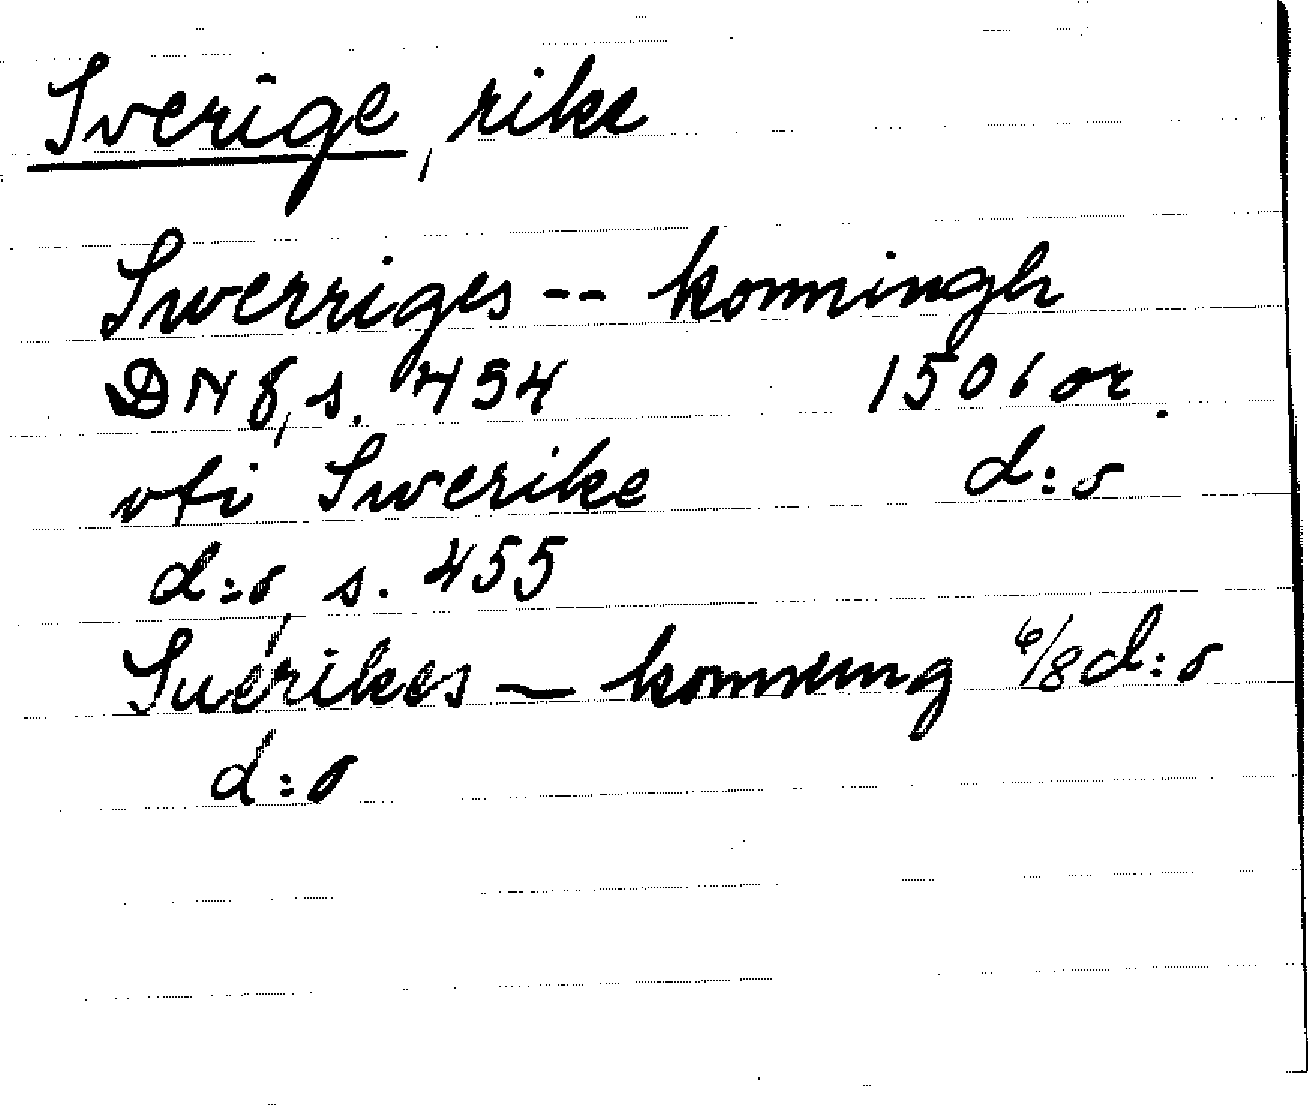 Sverige, rike
Swerriges -- konningh
DN 8, s. 454 1501 or.
vti Swerike d:o
d:o, s. 455
Suerikes — konnung 6/8 d:o
d:o